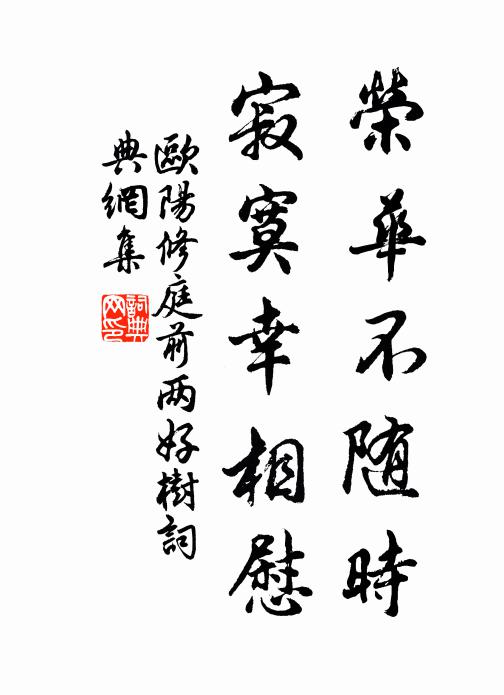 榮華不随時
寂寞幸相慰
歐陽修庭前两好樹詞
典網集
詞典网印